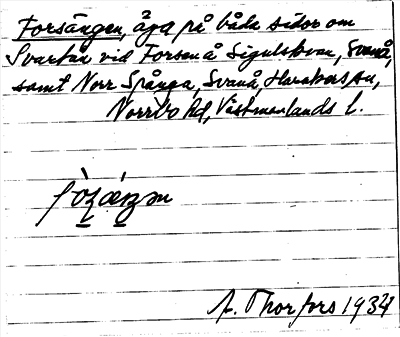 Forsängen, äga på båda sidor om
Svartån vid Forsen å Sigulsbovar, Svanå,
samt Norr Spånga, Svanå, Harakers sn,
Norrbo hd, Västmanlands l.
A. Thorfors 1934